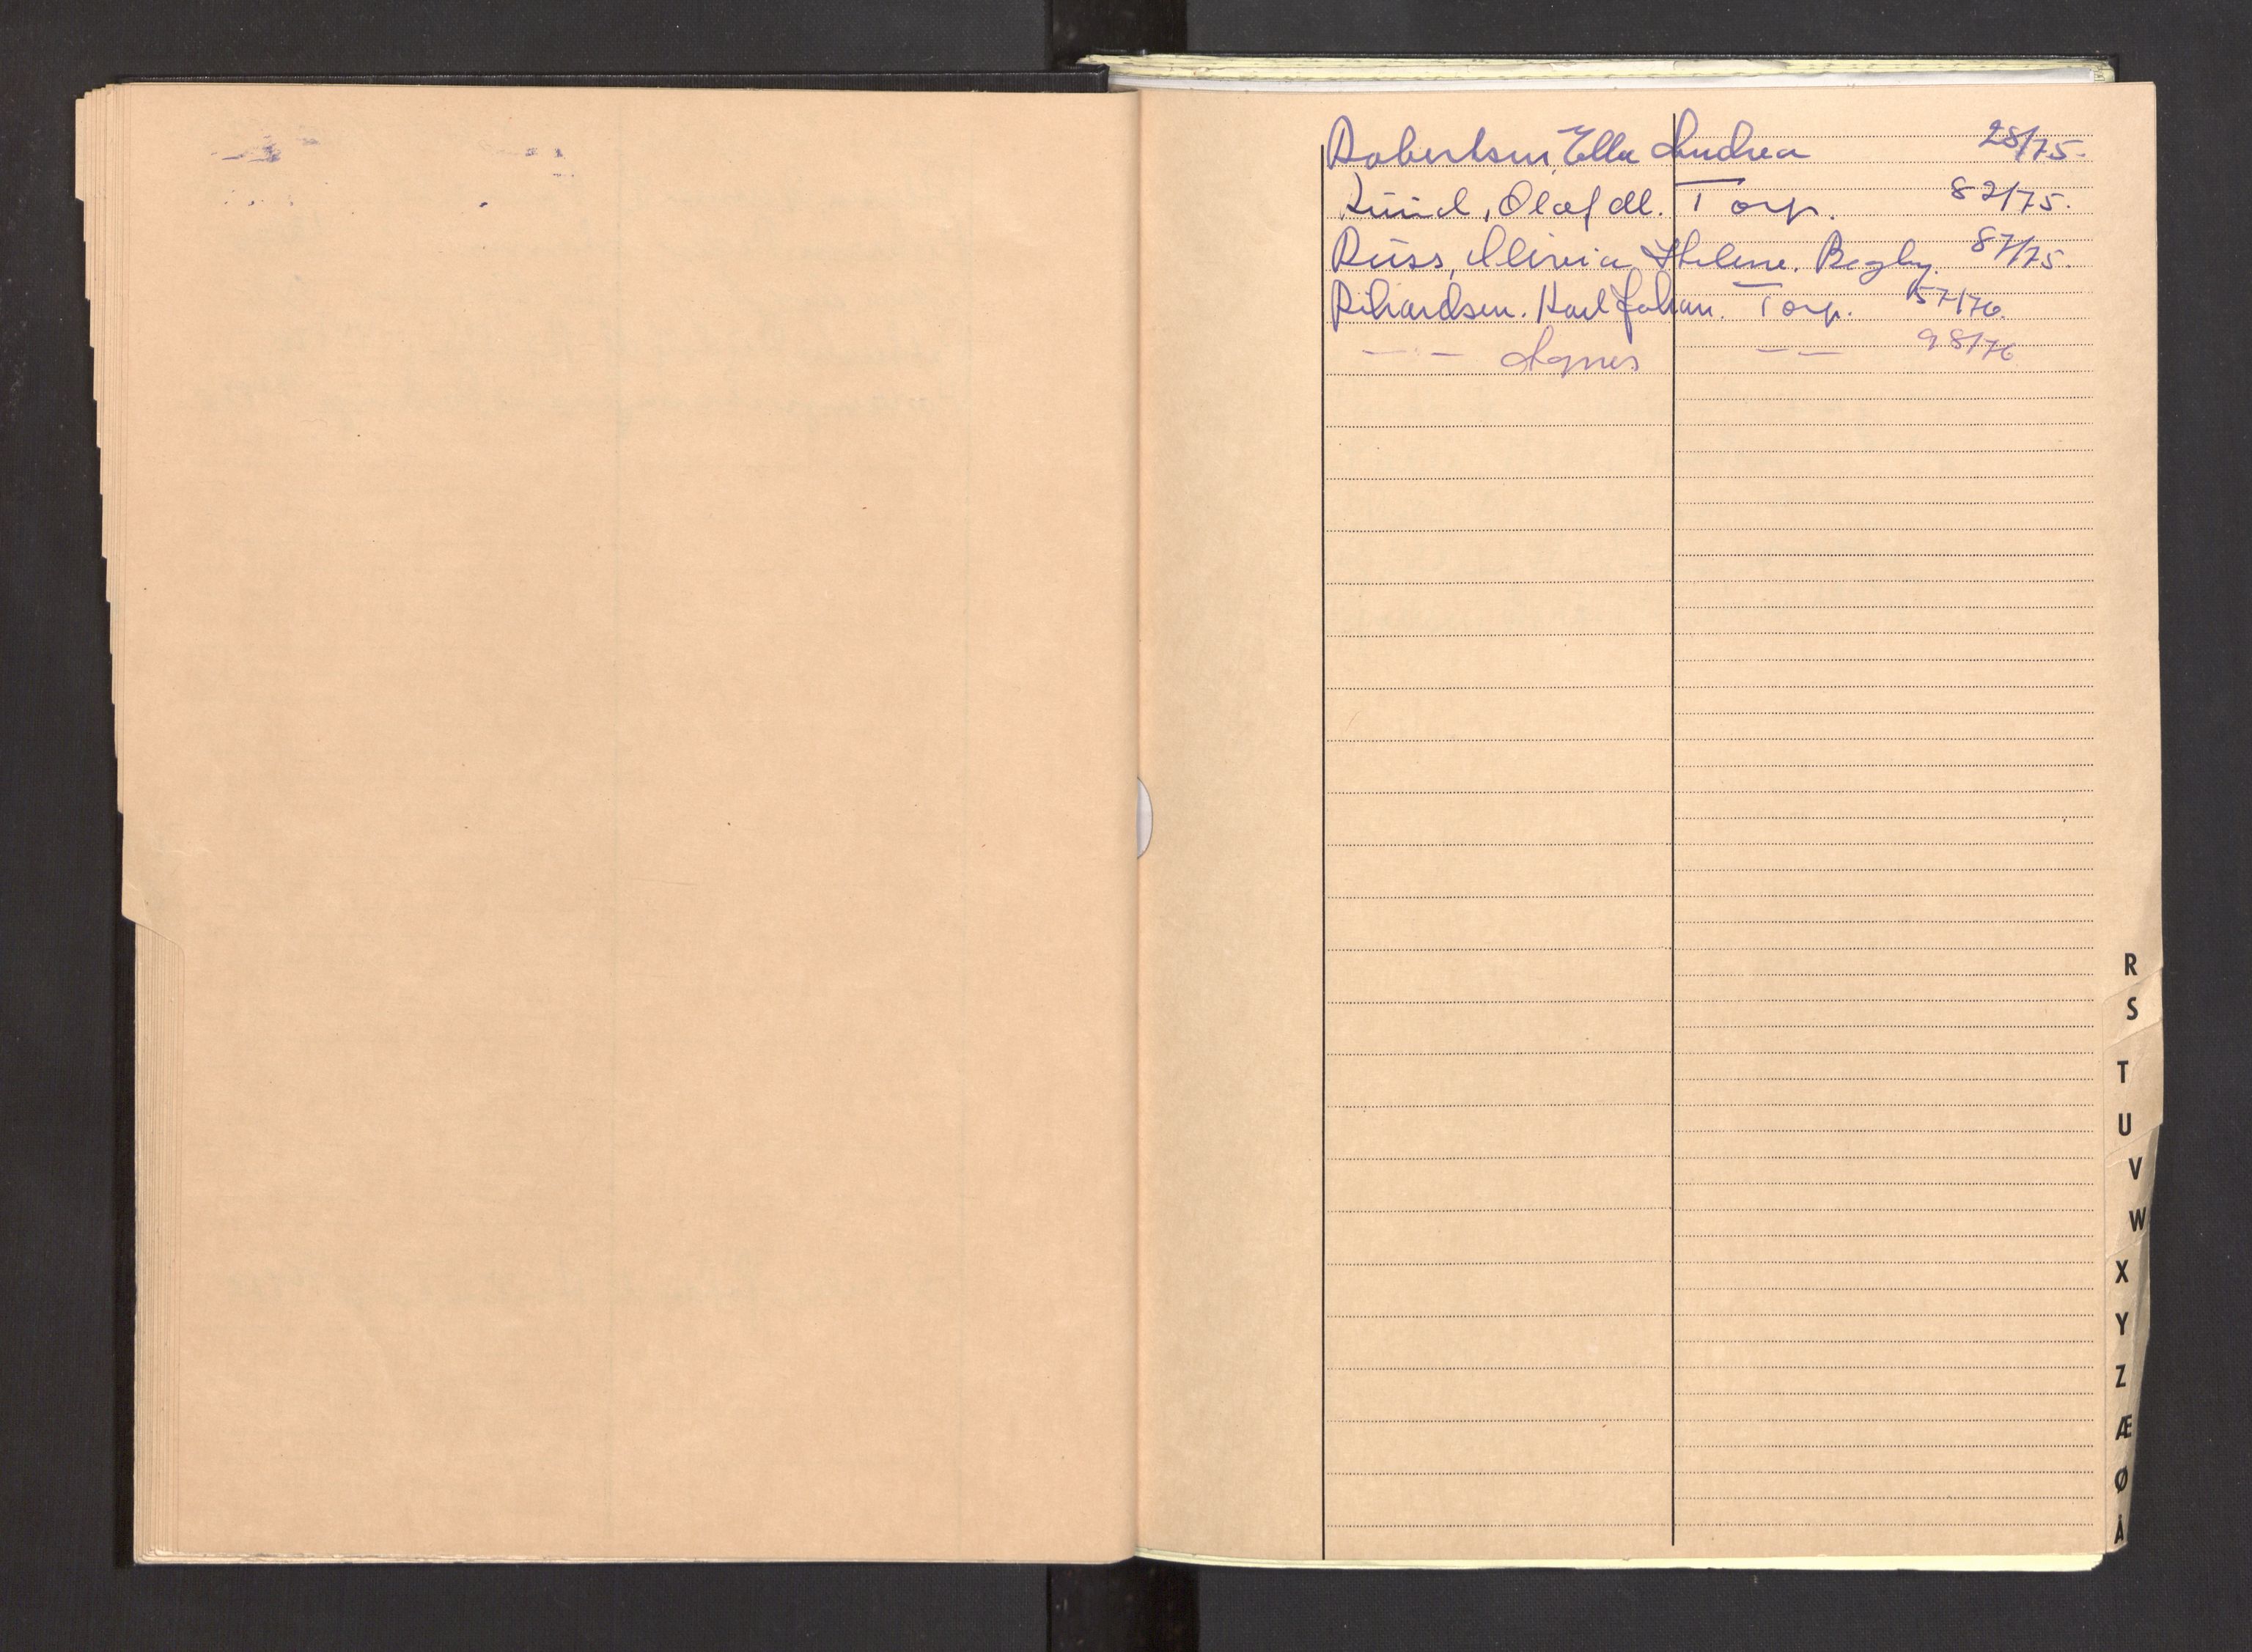 Robertsen, Ella Andrea 28/75.
Ruud, Olaf M. Torp. 82/75.
Russ, Minia Helene. Begby. 87/75.
Rihardsen. Karl Johan. Torp. 57/76.
— - — Agnes — — 98/76
R
S
T
U
V
W
X
Y
Z
Æ
Ø
Å